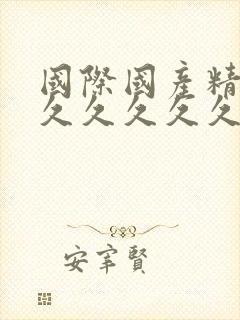 國際國產精
久久久久久
安宰賢